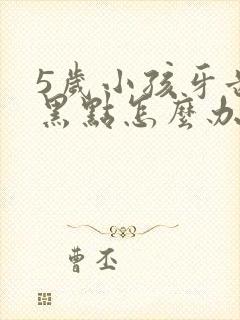 5歲小孩牙
黑點怎麼办
曹丕